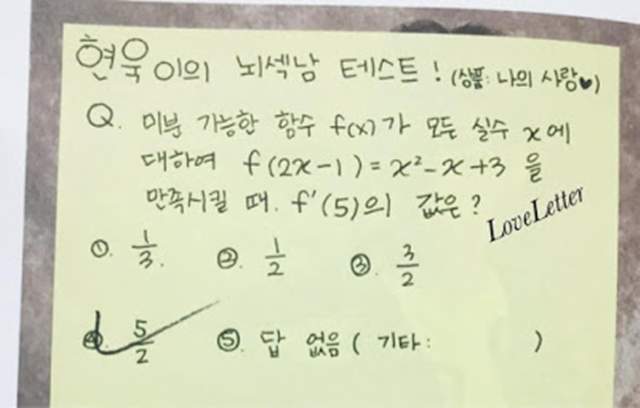 현욱이의 뇌섹남 테스트! (상품: 나의 사랑♥)
Q. 미분 가능한 함수 f(x)가 모든 실수 x에
대하여 f(2x-1)=x²-x+3 을
만족시킬 때. f'(5)의 값은?
LoveLetter
①. 1/3. ②. 1/2 ③. 3/2
④. 5/2 ⑤. 답 없음 ( 기타: )